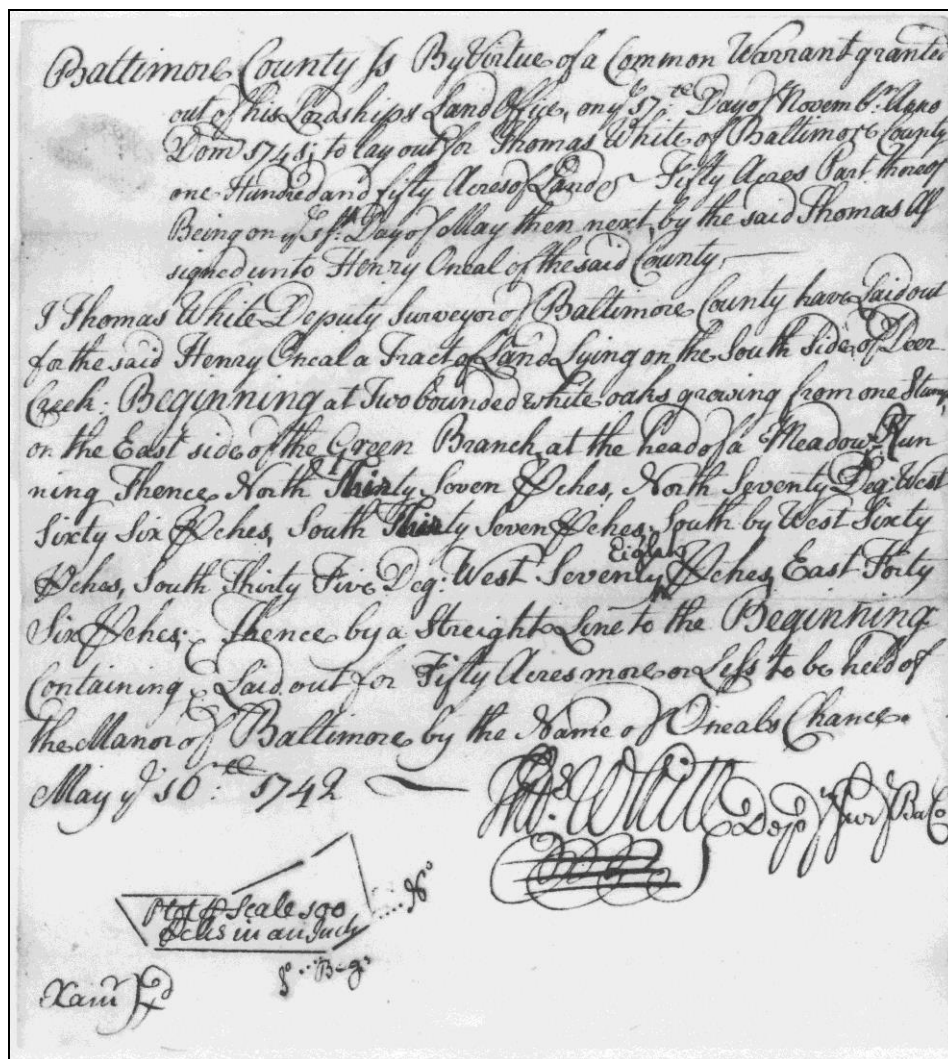 Baltimore County Ss By Virtue of a Common Warrant granted
out of his Lordships Land Office, on ye 17:th Day of Novembr. Anno
Dom 1741; to lay out for Thomas White of Baltimore County
one Hundred and fifty Acres of Land Fifty Acres Part thereof
Being on ye Day of May then next, by the said Thomas As
signed unto Henry Oneal of the said County,
I Thomas White Deputy Surveyor of Baltimore County have Laid out
for the said Henry Oneal a Tract of Land Lying on the South side of Deer
Creek: Beginning at Two bounded white oaks growing from one Stump
on the East side of the Green Branch, at the head of a Meadow, Run
ning Thence North Thirty Seven Pches, North Seventy Deg: West
Sixty Six Pches, South Thirty Seven Pches; South by West Sixty
Eight
Pches, South Thirty Five Deg: West Seventy Pches, East Forty
Six Pches; Thence by a Streight Line to the Beginning
Containing & Laid out for Fifty Acres more or Less to be held of
the Manor of Baltimore by the Name of Oneals Chance.
May ye 10:th 1742
Thos. White Depy Surr Ba Co
Plot P Scale 100
Pches in an Inch
No
So Beg:
Xamd